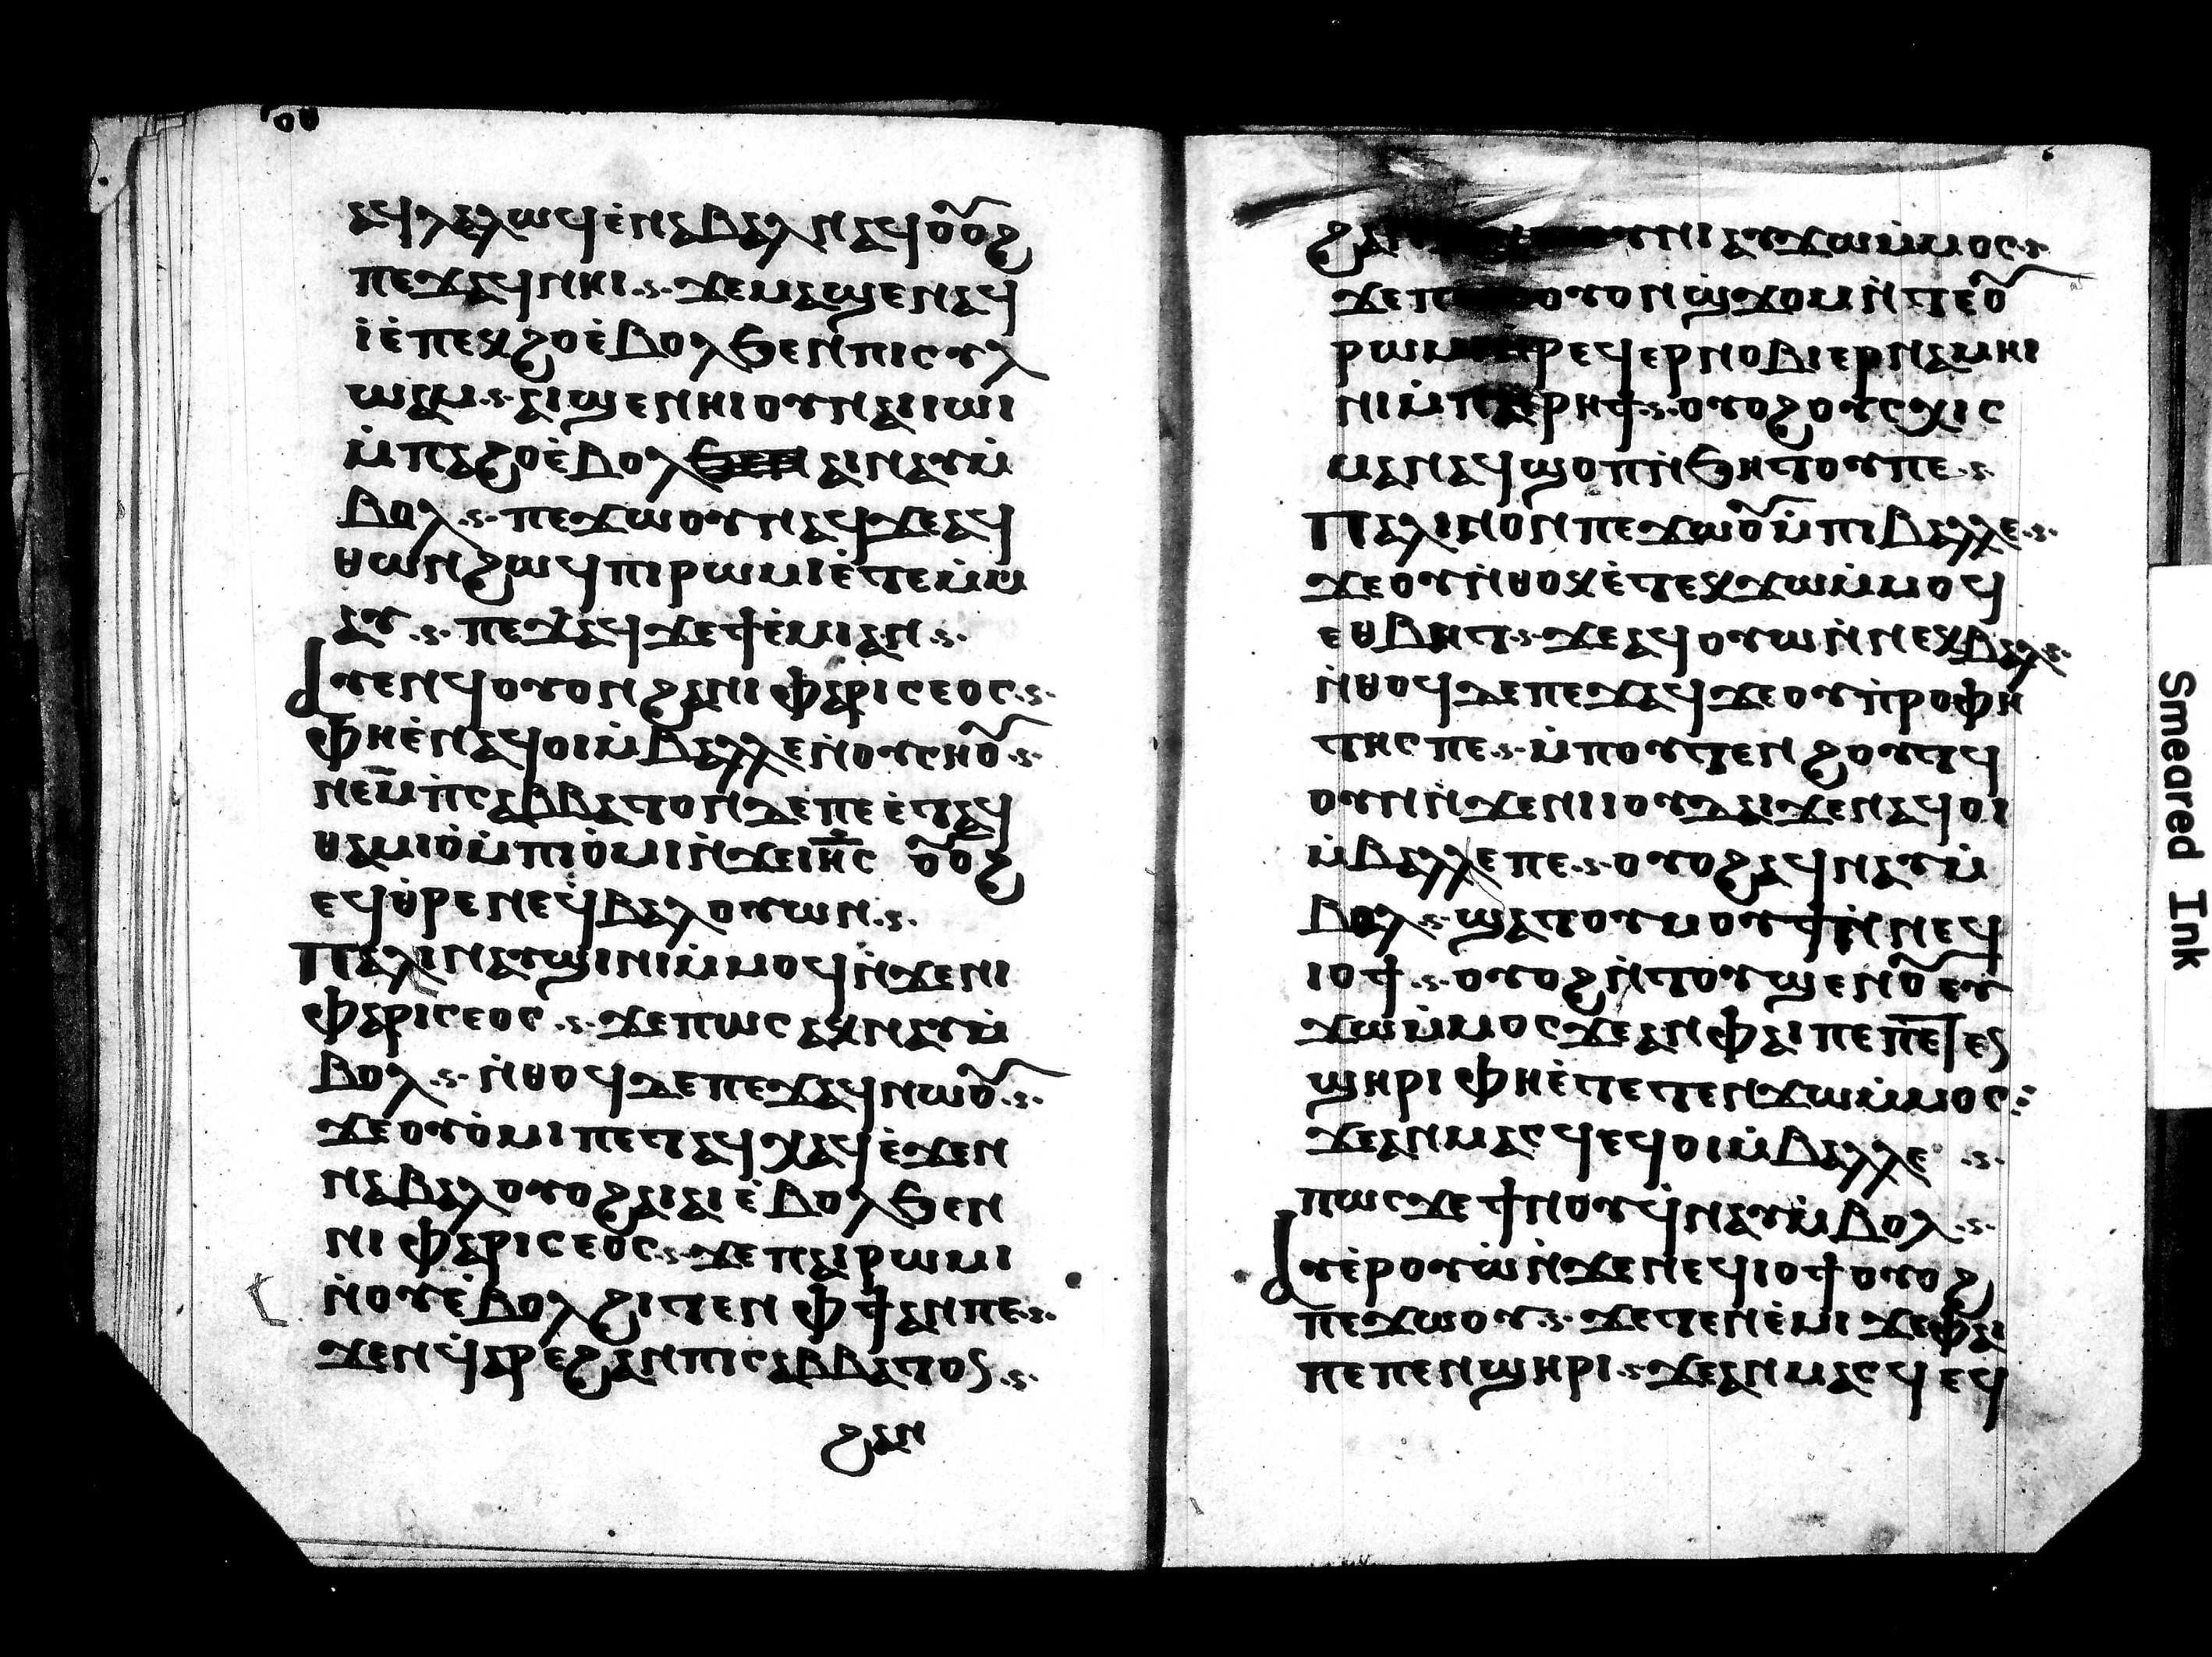 ⲁϥⲗⲁⲗⲱϥ ⲉ̇ⲛⲁⲃⲁⲗ ⲛⲁϥ ⲟⲩⲟϩ
ⲡⲉϫⲁϥ ⲛⲏⲓ ϫⲉ ⲙⲁϣⲉ ⲛⲁϥ
ⲓⲉ̇ ⲡⲉⲕϩⲟ ⲉ̇ⲃⲟⲗ ϧⲉⲛ ⲡⲓⲥⲩⲗ
ⲱⲁⲙ ⲁⲓϣⲉⲛⲏⲓ ⲟⲩⲛ ⲁⲓⲓⲱⲓ
ⲙ̇ⲡⲁϩⲟ ⲉ̇ⲃⲟⲗ ⲁⲓⲛⲁⲩ ⲙ̇
ⲃⲟⲗ ⲡⲉϫⲱⲟⲩ ⲛⲁϥ ϫⲉ ⲁϥ
ⲑⲱⲛ ϩⲱϥ ⲡⲓⲣⲱⲙⲓ ⲉ̇ⲧⲉⲙ̇ⲙ
ⲁⲩ ⲡⲉϫⲁϥ ϫⲉ ϯⲉ̇ⲙⲓ ⲁⲛ
ⲁⲩⲉⲛϥ ⲟⲩⲟⲛ ϩⲁ ⲛⲓⲫⲁⲣⲓⲥⲉⲟⲥ
ⲫⲏⲉ̇ⲛⲁϥⲟⲓ ⲙ̇ⲃⲉⲗⲗⲉ ⲛ̇ⲟⲩⲥⲏⲟⲩ
ⲛⲉ ⲙ̅ⲡ̇ⲥⲁⲃⲃⲁⲧⲟⲛ ⲇⲉ ⲡⲉ ⲉ̇ⲧⲁϥ
ⲑⲁⲙⲓⲟ̇ ⲙ̇ⲡⲓⲟ̇ⲙⲓ ⲛ̇ϫⲉ ⲓⲏ̅ⲥ ⲟⲩⲟϩ
ⲉϥⲑ̇ⲣⲉ ⲛⲉϥⲃⲁⲗ ⲟⲩⲱⲛ
ⲡⲁⲗⲓⲛ ⲁⲩϣⲓⲛⲓ ⲙ̇ⲙⲟϥ ⲛ̇ϫⲉ ⲛⲓ
ⲫⲁⲣⲓⲥⲉⲟⲥ ϫⲉ ⲡⲱⲥ ⲁⲕⲛⲁⲩ ⲙ̇
ⲃⲟⲗ ⲛ̇ⲑⲟϥ ⲇⲉ ⲡⲉϫⲁϥ ⲛⲱⲟⲩ
ϫⲉ ⲟⲩⲟ̇ⲙⲓ ⲡⲉⲧⲁϥⲭⲁϥ ⲉ̇ϫⲉⲛ
ⲛⲁⲃⲁⲗ ⲟⲩⲟϩ ⲁⲓⲁⲓ ⲉ̇ⲃⲟⲗ ϧⲉⲛ
ⲛⲓⲫⲁⲣⲓⲥⲉⲟⲥ ϫⲉ ⲡⲁⲓⲣⲱⲙⲓ
ⲛ̇ⲟⲩⲉ̇ⲃⲟⲗ ϩⲓⲧⲉⲛ ⲫϯ ⲁⲛ ⲡⲉ
ϫⲉ ⲛϥ̇ⲁⲣⲉϩ ⲁⲛ ⲡⲓⲥⲁⲃⲃⲁⲧⲟⲥ
ϩⲁⲛ
ϩⲁⲛ ⲟⲩⲛⲓ ⲁⲩϫⲱ ⲙ̇ⲙⲟⲥ
ϫⲉ ⲡ ⲟⲩⲟⲛ ϣϫⲟⲙ ⲛ̇ⲧⲉ ⲟⲩ
ⲣⲱⲙⲓ ⲛ̇ⲣⲉϥⲉⲣⲛⲟⲃⲓ ⲉⲣ ⲛⲁⲙⲏⲓ
ⲛⲓ ⲙ̇ⲡⲁⲓⲣⲏϯ ⲟⲩⲟϩ ⲟⲩⲥⲭⲓⲥ
ⲙⲁ ⲛⲁϥϣⲟⲡ ⲛ̇ϧⲏⲧⲟⲩ ⲡⲉ
ⲡⲁⲗⲓⲛ ⲟⲛ ⲡⲉϫⲱⲟⲩ ⲙ̇ⲡⲓⲃⲉⲗⲗⲉ
ϫⲉ ⲟⲩ ⲛ̇ⲑⲟⲕ ⲉ̇ⲧⲉⲕϫⲱ ⲙ̇ⲙⲟϥ
ⲉⲑⲃⲏⲧ ϫⲉ ⲁϥⲟⲩⲱⲛ̇ ⲛⲉⲕⲃⲁⲗ
ⲛ̇ⲑⲟϥ ⲇⲉ ⲡⲉϫⲁϥ ϫⲉ ⲟⲩⲡ̇ⲣⲟⲫⲏ
ⲧⲏⲥ ⲡⲉ ⲙ̇ⲡⲟⲩⲧⲉⲛϩⲟⲩⲧϥ
ⲟⲩⲛ ⲛ̇ϫⲉ ⲛⲓⲓⲟⲩⲇⲁⲓ ϫⲉ ⲛⲁϥⲟⲓ
ⲙ̇ⲃⲉⲗⲗⲉ ⲡⲉ ⲟⲩⲟϩ ⲁϥⲛⲁⲩ ⲙ̇
ⲃⲟⲗ ϣⲁⲧⲟⲩⲙⲟⲩϯ ⲛ̇ⲛⲉϥ
ⲓⲟϯ ⲟⲩⲟϩ ⲛ̇ⲧⲟⲩϣⲉⲛⲟⲩ ⲉⲩ
ϫⲱ ⲙ̇ⲙⲟⲥ ϫⲉ ⲁⲛ ⲫⲁⲓ ⲡⲉ ⲡⲉⲧⲉⲛ
ϣⲏⲣⲓ ⲫⲏⲉ̇ⲧⲉⲧⲉⲛϫⲱ ⲙ̇ⲙⲟⲥ
ϫⲉ ⲁⲛⲙⲁⲥϥ ⲉϥⲟⲓ ⲙ̇ⲃⲉⲗⲗⲉ
ⲡⲱⲥ ϫⲉ ϯⲛⲟⲩ ϥ̇ⲛⲁⲩ ⲙ̇ⲃⲟⲗ
ⲁⲩⲉ̇ⲣⲟⲩⲱ̇ ⲛ̇ϫⲉ ⲛⲉϥⲓⲟϯ ⲟⲩⲟϩ
ⲡⲉϫⲱⲟⲩ ϫⲉ ⲧⲉⲛⲉ̇ⲙⲓ ϫⲉ ⲫⲁⲓ
ⲡⲉ ⲡⲉⲛϣⲏⲣⲓ ϫⲉ ⲁⲛⲙⲁⲥϥ ⲉϥ
Smeared Ink